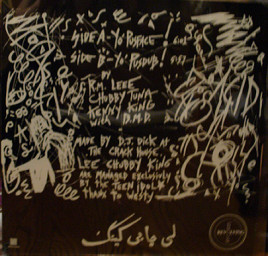 SIDE A- YO' PUSFACE!
SIDE B- YO' PUSDUB!
BY
F.R.M. LEEE
CHUBBY TUNA
KENNY KING
D.M.D.
MADE BY D.J. DICK AT
THE CRACK HOUSE
LEE CHUBBY KING
ARE MANAGED EXCLUSIVELY
BY THE TEEN IDOLK
THANX TO WESTY
لی چابی کینگ